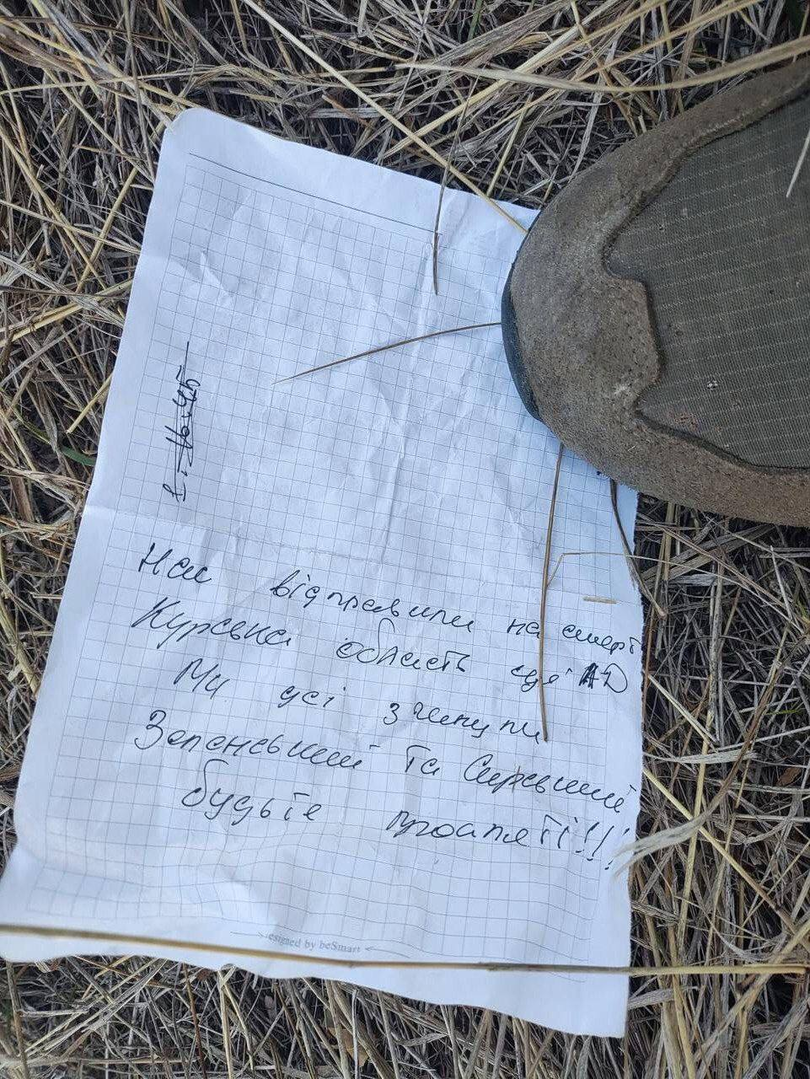 Нас відправили на смерть
Курська область це АД
Ми усі згинули
Зеленський та Сирський
будьте прокляті!!!
esigned by beSmart